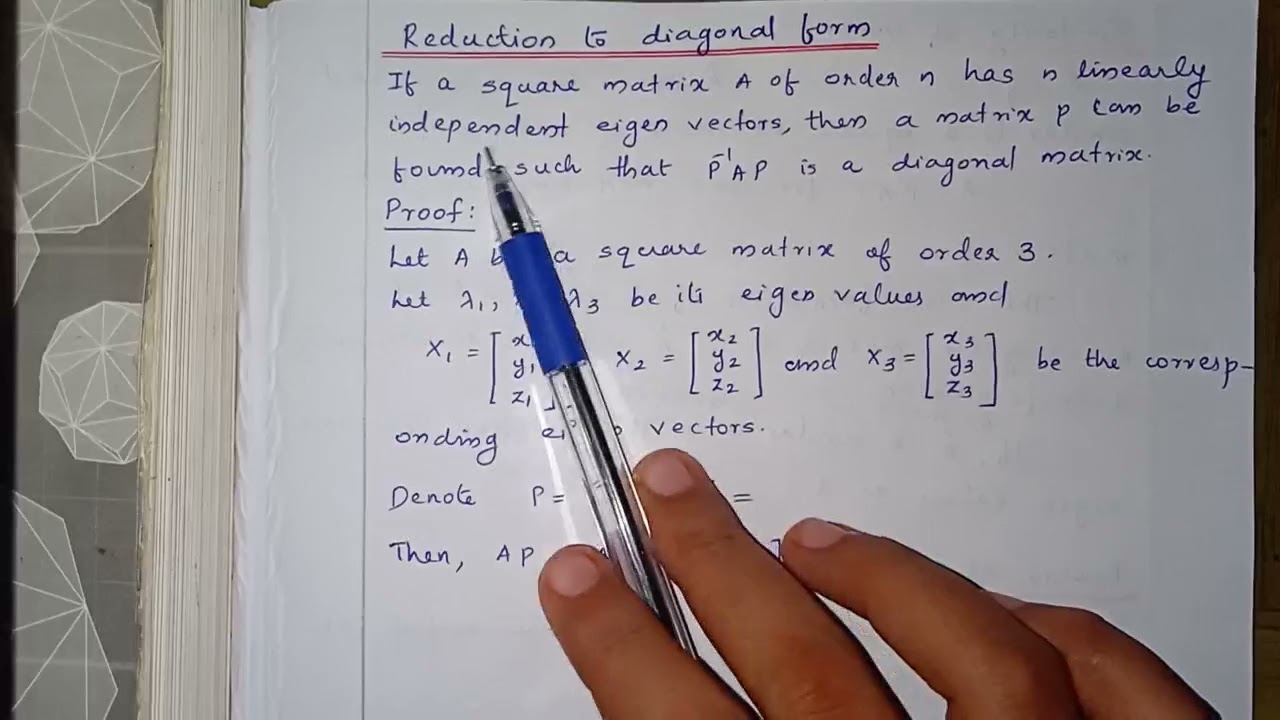 Reduction to diagonal form
If a square matrix A of order n has n linearly
independent eigen vectors, then a matrix P can be
found such that P⁻¹AP is a diagonal matrix.
Proof:
Let A a square matrix of order 3.
Let λ₁, λ₃ be its eigen values and
X₁ = [ y₁ z₁ ] X₂ = [ x₂ y₂ z₂ ] and X₃ = [ x₃ y₃ z₃ ] be the corresp-
onding vectors.
Denote P = =
Then, AP ]